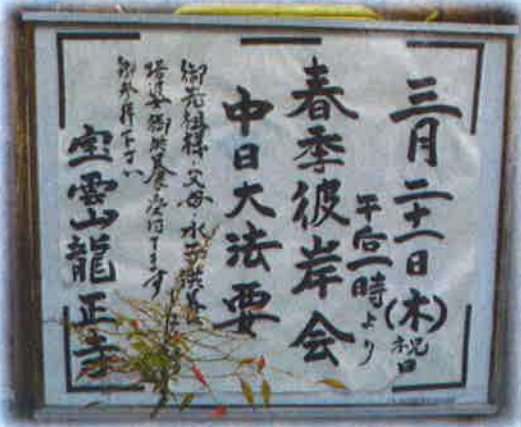 三月二十一日(木)祝日
午后一時より
春季彼岸会
中日大法要
御先祖様・父母・水子供養
塔婆御供養受付てます
御参拝下さい
宝雲山龍正寺